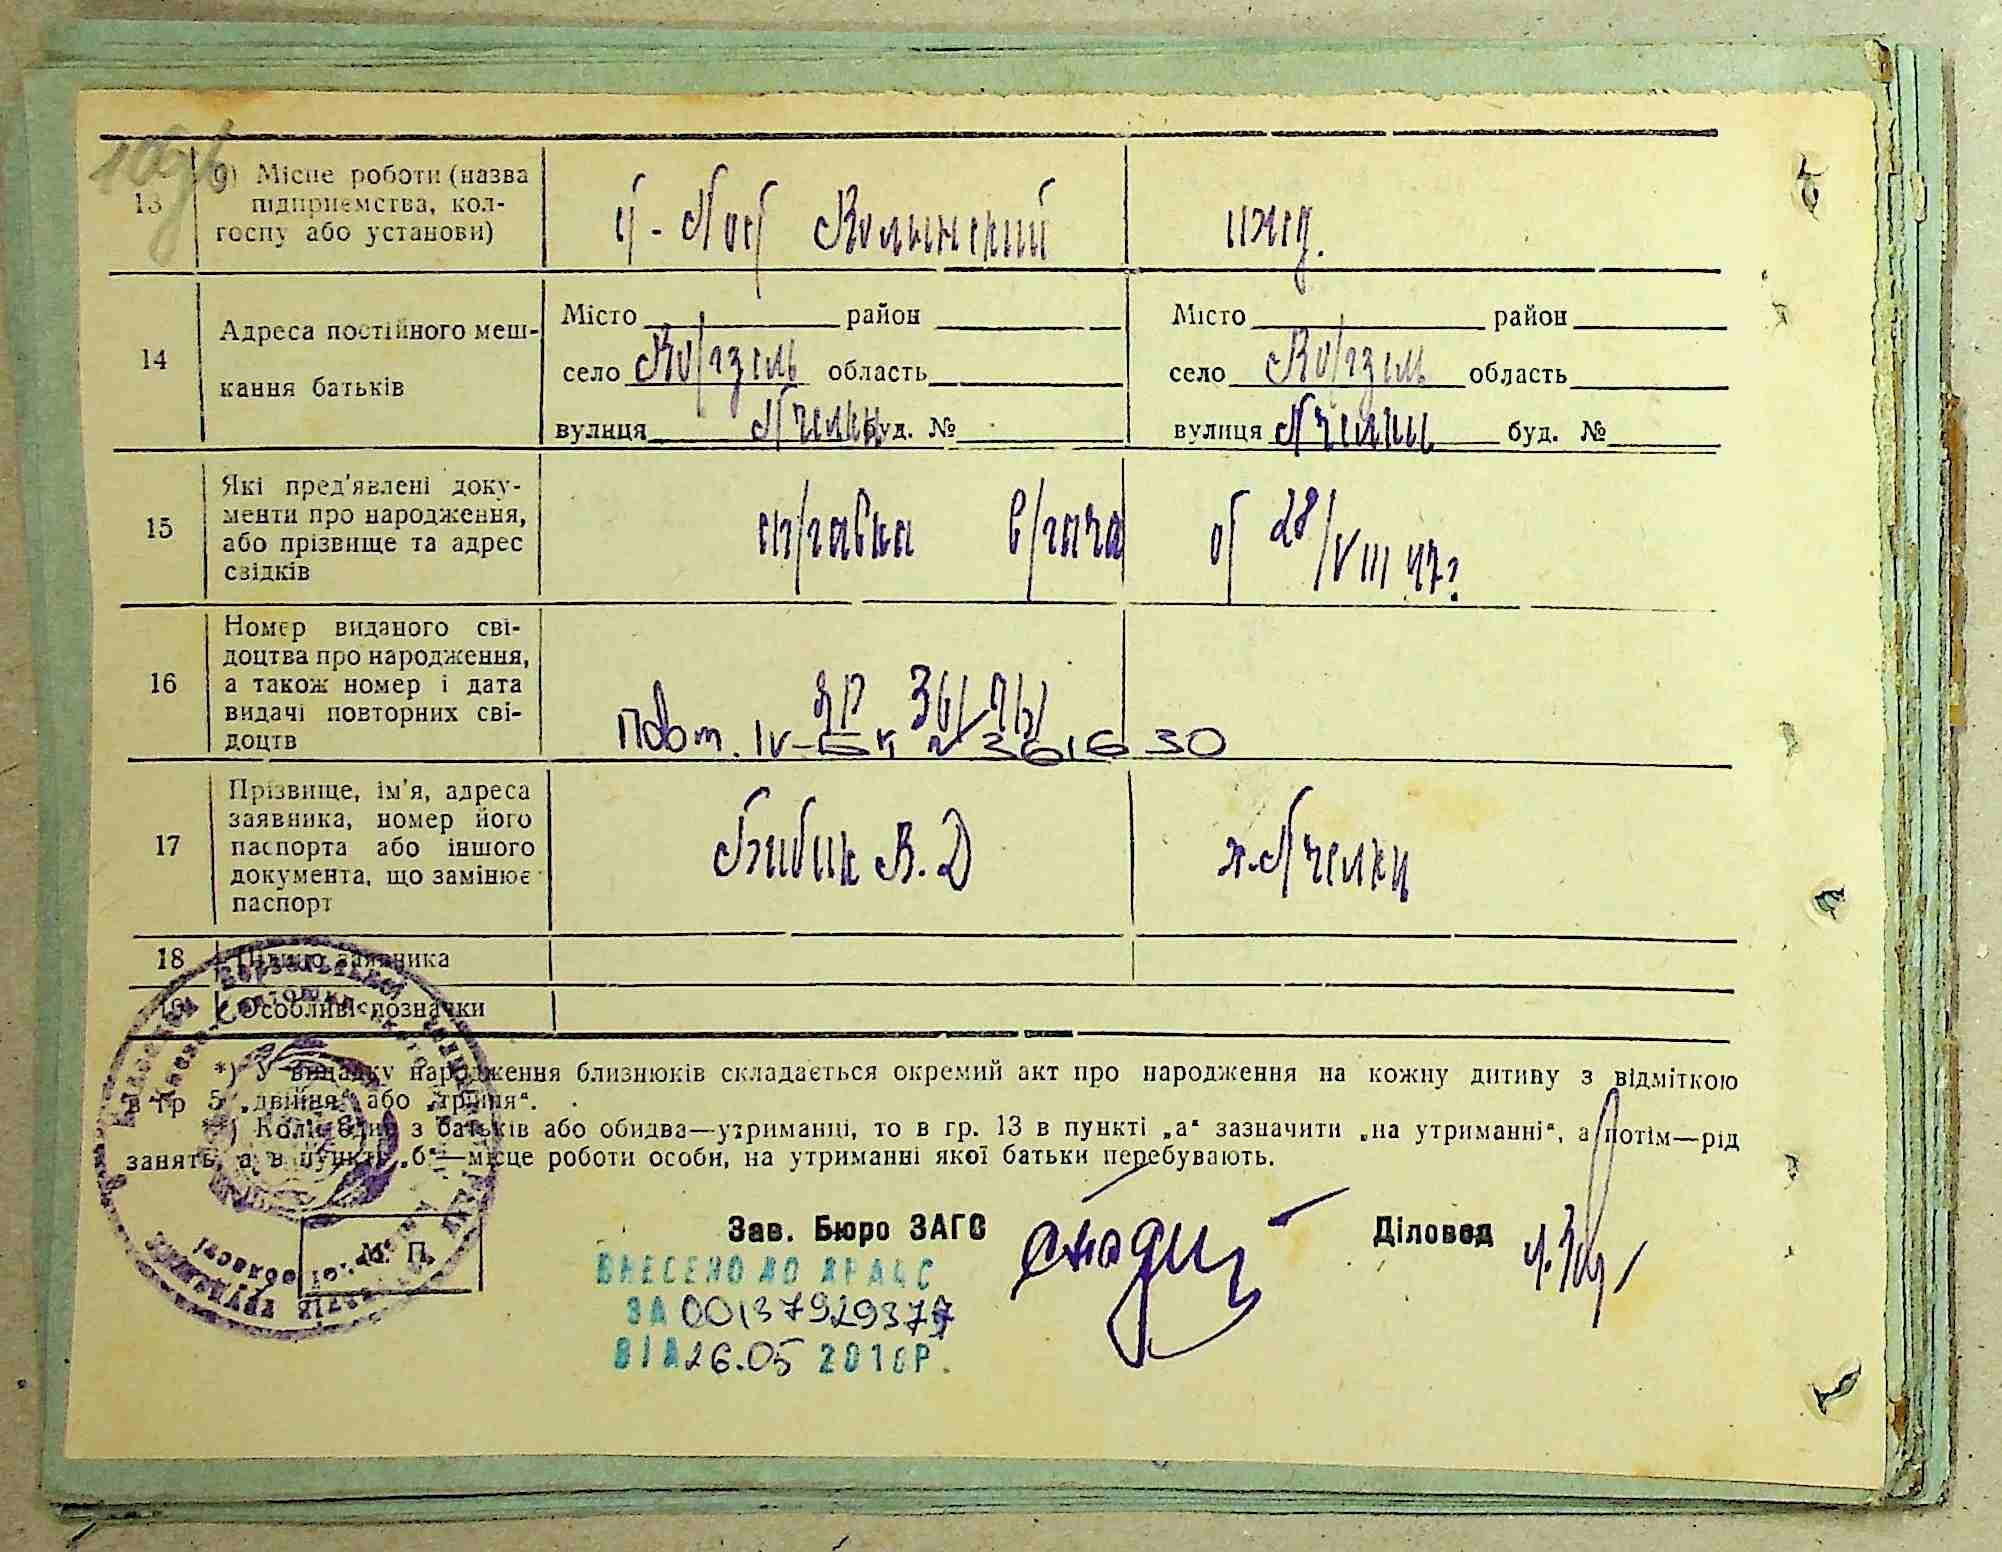 13
б) Місце роботи (назва підприємства, колгоспу або установи)
Пост Волынский
ижд.
14
Адреса постійного мешкання батьків
Місто район
село Ворзель область
вулиця Пчелки буд. №
Місто район
село Ворзель область
вулиця Пчелки буд. №
15
Які пред'явлені документи про народження, або прізвище та адрес свідків
справка врача
от 28/VIII 47 г
16
Номер виданого свідоцтва про народження, а також номер і дата видачі повторних свідоцтв
Повт. IV-БК № 361630
17
Прізвище, ім'я, адреса заявника, номер його паспорта або іншого документа, що замінює паспорт
Бибик В. Д
х. Пчелки
18
Підпис заявника
19
Особливі позначки
*) У випадку народження близнюків складається окремий акт про народження на кожну дитину з відміткою
в гр 5 „двійня“ або „трійня“.
**) Коли один з батьків або обидва—утриманці, то в гр. 13 в пункті „а“ зазначити „на утриманні“, а потім—рід
занять, а в пункті „б“—місце роботи особи, на утриманні якої батьки перебувають.
Зав. Бюро ЗАГС
Діловод
М. П.
ВНЕСЕНО ДО ДРАЦС
ЗА 00137929377
ВІД 26.05 2018Р.